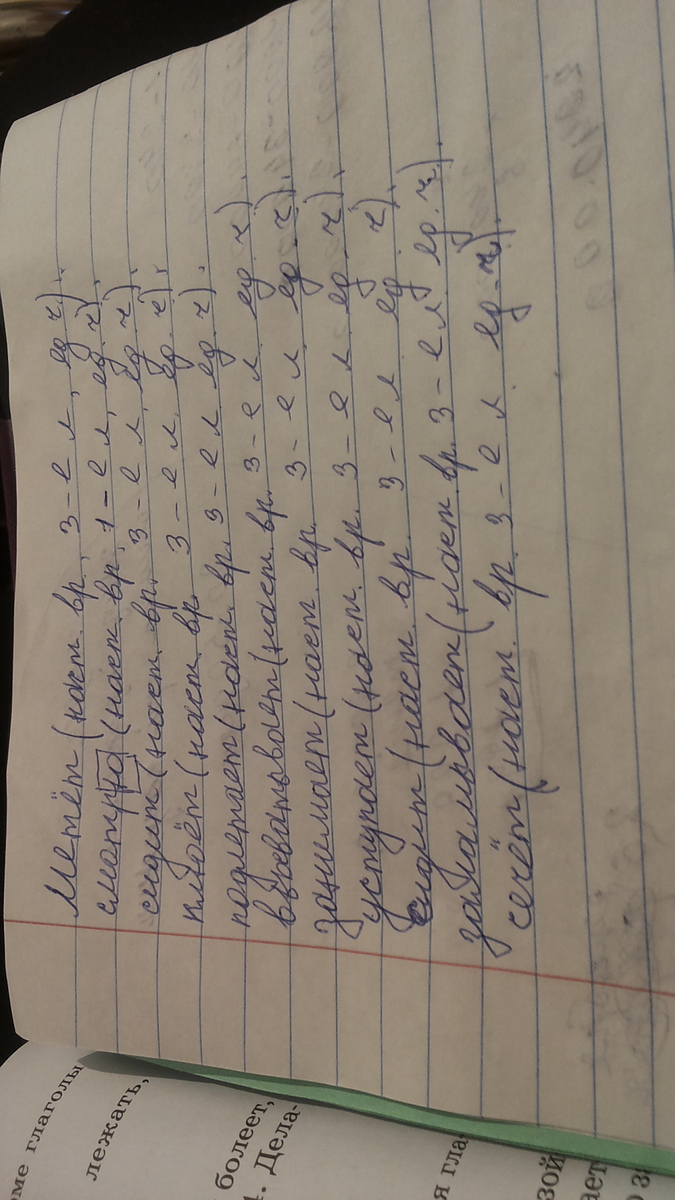 Метёт (наст. вр., 3-е л, ед. ч),
смотрю (наст. вр, 1-е л, ед. ч),
сидит (наст. вр. 3-е л, ед. ч),
плюёт (наст. вр. 3-е л. ед. ч),
подметает (наст. вр. 3-е л ед. ч).
(наст. вр. 3-е л. ед. ч),
занимает (наст. вр. 3-е л. ед. ч).
уступает (наст. вр. 3-е л. ед. ч),
сидит (наст. вр. 3-е л ед. ч),
(наст. вр. 3-е л ед. ч),
сечёт (наст. вр. 3-е л. ед. ч).
оме глаголы
лежать,
болеет,
4. Дела-
я гла
вой